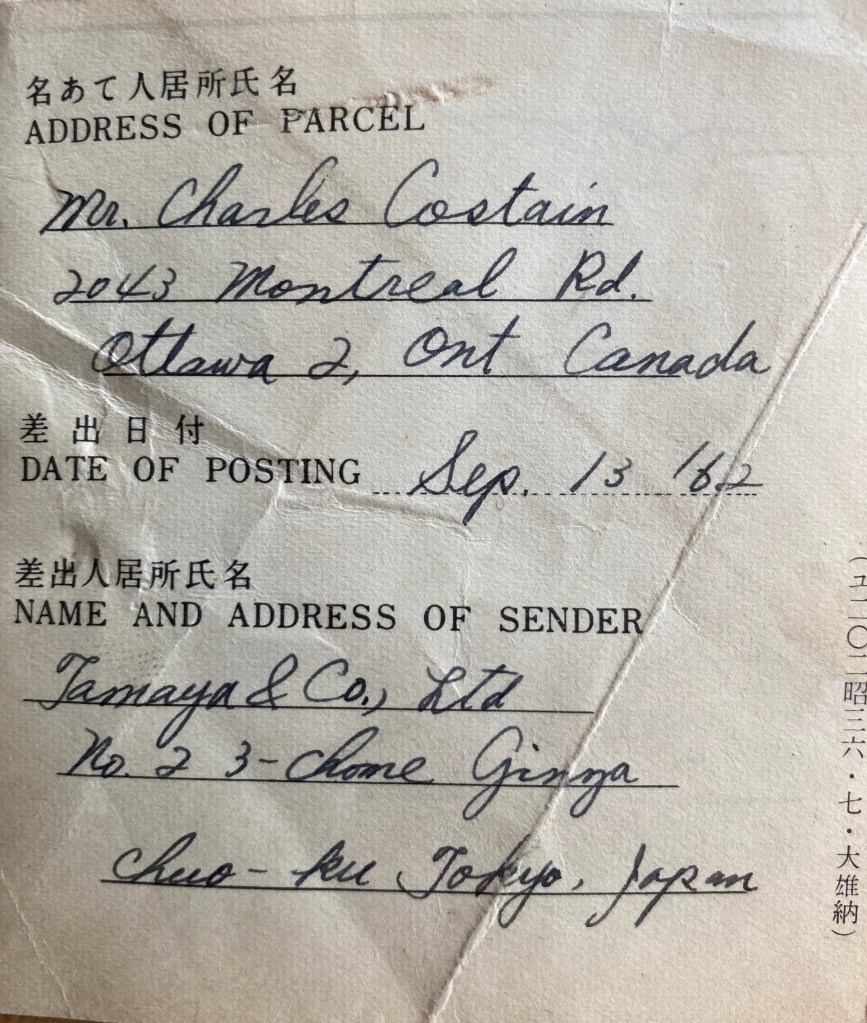 名あて人居所氏名
ADDRESS OF PARCEL
Mr. Charles Costain
2043 Montreal Rd.
Ottawa 2, Ont Canada
差出日付
DATE OF POSTING Sep. 13 '62
差出人居所氏名
NAME AND ADDRESS OF SENDER
Tamaya & Co., Ltd
No. 2 3-chome Ginza
Chuo-ku Tokyo, Japan
(ユ一一〇二 昭三六・七・大雄納)